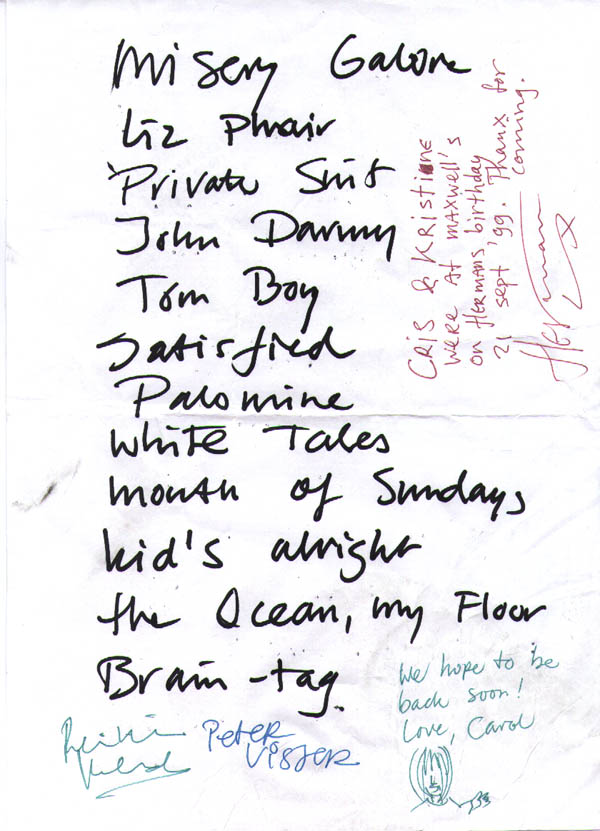 Misery Galore
Liz Phair
Private Suit
John Darmy
Tom Boy
Satisfied
Palomine
White Tales
month of Sundays
kid's alright
the Ocean, my Floor
Brain-tag
CRIS & KRISTINE
WERE AT MAXWELL'S
ON HERMANS birthday
21 sept '99. Thanx for
coming.
HERman X
We hope to be
back soon!
Love, Carol
PETER
VISSER